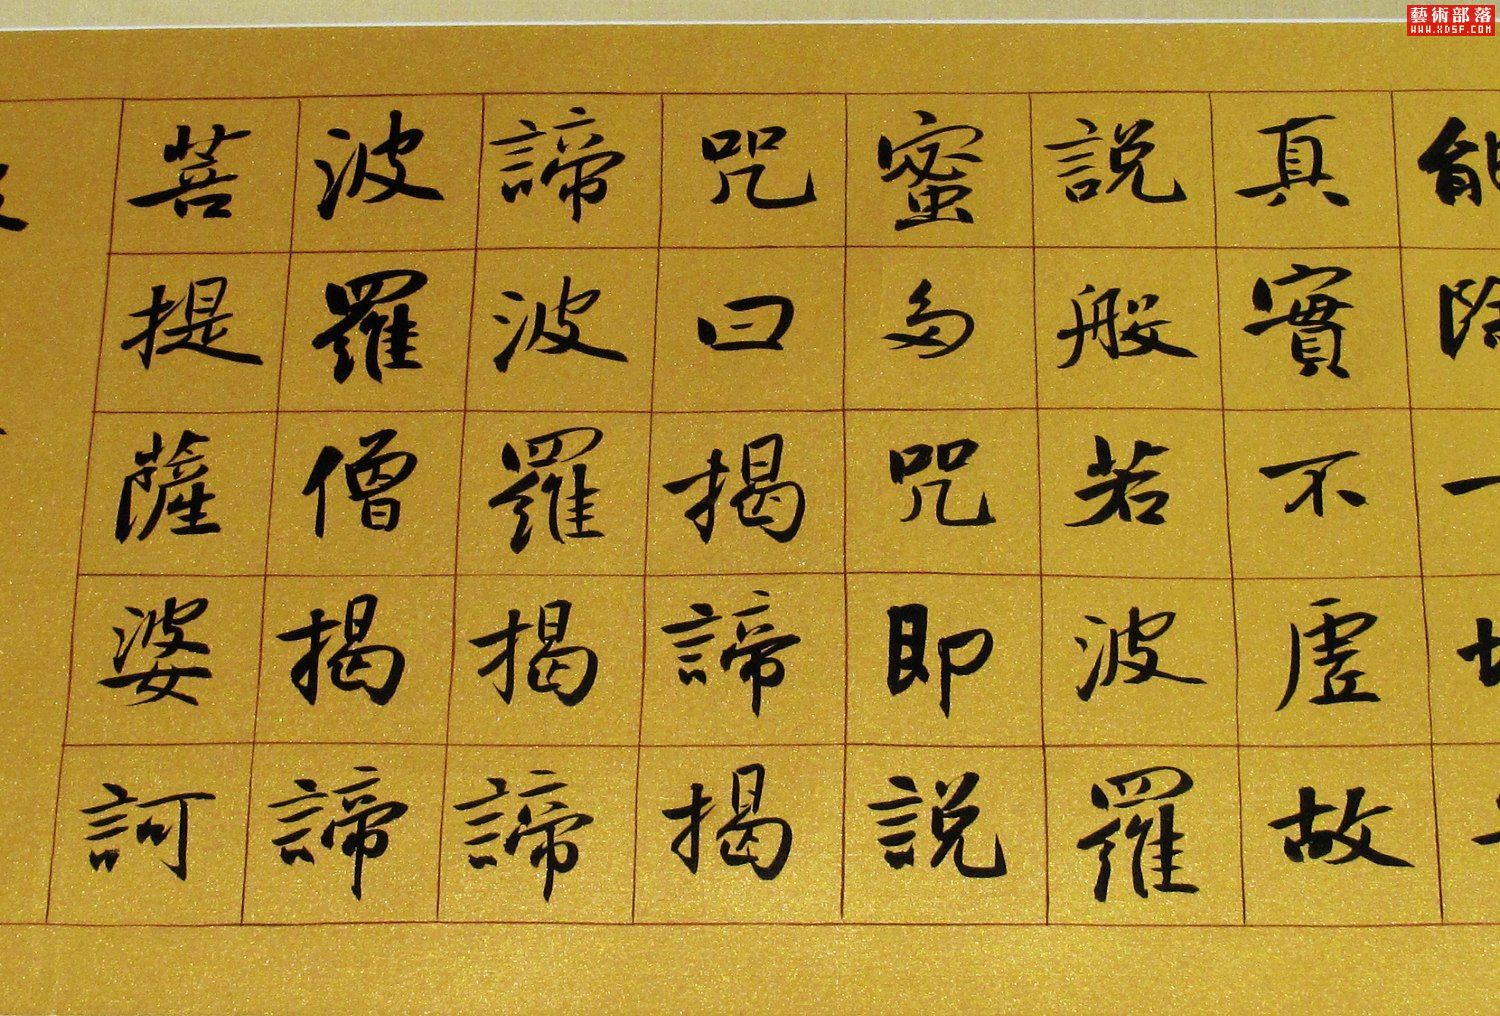 藝術部落
WWW.XDSF.COM
能除一
真實不虛故
說般若波羅
蜜多咒即說
咒曰揭諦揭
諦波羅揭諦
波羅僧揭諦
菩提薩婆訶